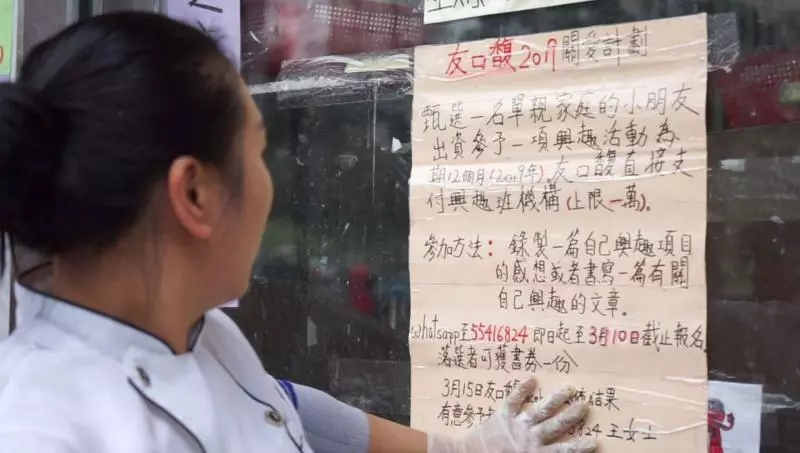 友口馥2019關愛計劃
甄選一名單親家庭的小朋友
出資參予一項興趣活動為
期12個月(2019年).友口馥直接支
付興趣班機構(上限一萬)。
參加方法：錄製一篇自己興趣項目
的感想或者書寫一篇有關
自己興趣的文章.
whatsapp至55416824即日起至3月10日截止報名.
落選者可獲書券一份
3月15日友口馥 佈結果
有意參予 6824王女士